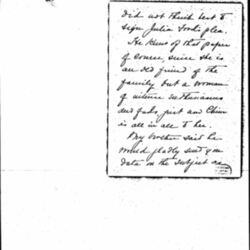 did not think best to
sign Julia Tod's plea.
He knew of that paper
of course, since she is
an old friend of the
family but a woman
of intense enthusiasms
and just and
is all in all to her.
My brother said he
would gladly send you
data on the subject as